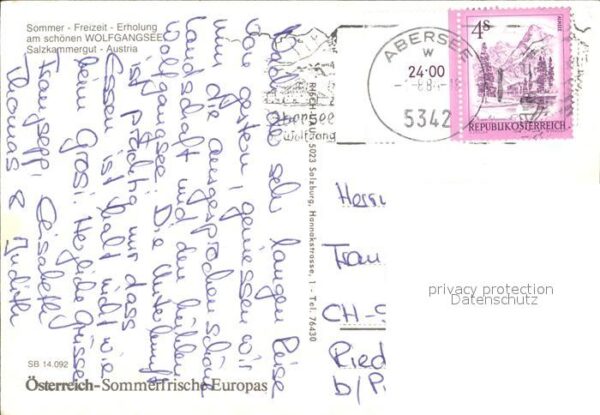 Sommer - Freizeit - Erholung
am schönen WOLFGANGSEE
Salzkammergut - Austria
Nach der sehr langen Reise
von gestern, geniessen wir
nun die ausgesprochen schöne
Landschaft und den kühlen
Wolfgangsee. Die Unterkunft
ist prächtig nur dass
Essen ist halt nicht wie
beim Grosi. Herzliche Grüsse
Franzsepp, Elisabeth
Thomas & Judith
RISCH-LAU, 5023 Salzburg, Hannakstrasse, 1 - Tel. 76430
SB 14.092
Österreich-Sommerfrische Europas
Abersee
Wolfgang
ABERSEE
W
24·00
5342
4 S
REPUBLIK ÖSTERREICH
Herrn
CH-
Ried
b/
privacy protection
Datenschutz